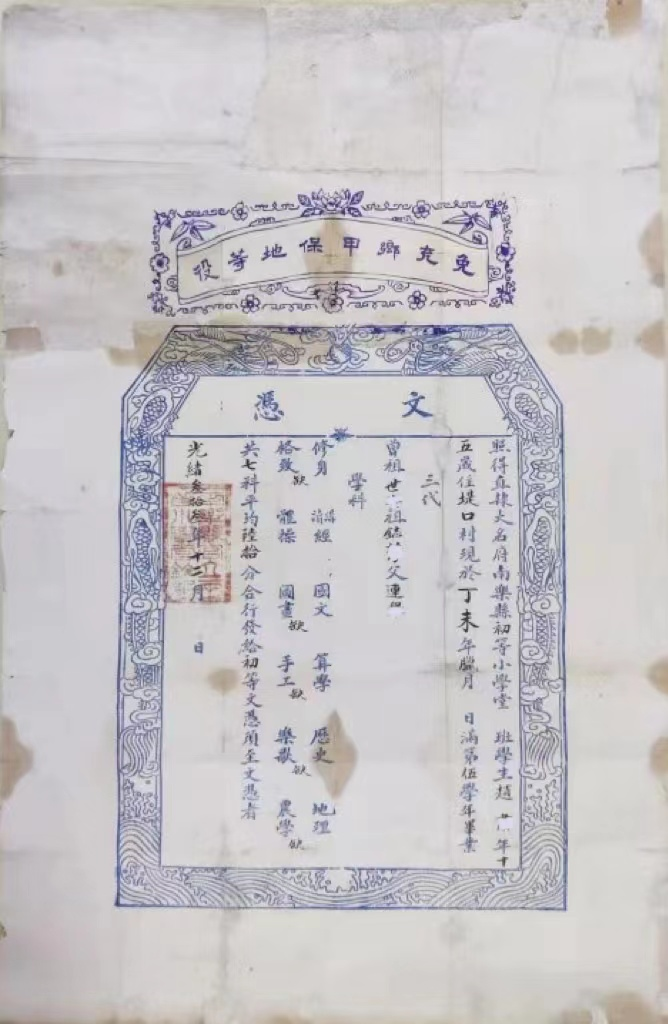 免充鄉甲保地等役
文憑
照得直隸大名府南樂縣初等小學堂 班學生趙 年十
五歲住堤口村現於丁未年臘月 日滿第伍學年畢業
三代
曾祖世 祖錦 父連
學科
修身 講讀經 國文 算學 歷史 地理
格致缺 體操 國畫缺 手工缺 樂歌缺 農學缺
共七科平均陸拾分合行發給初等文憑須至文憑者
光緒叁拾叁年十二月 日